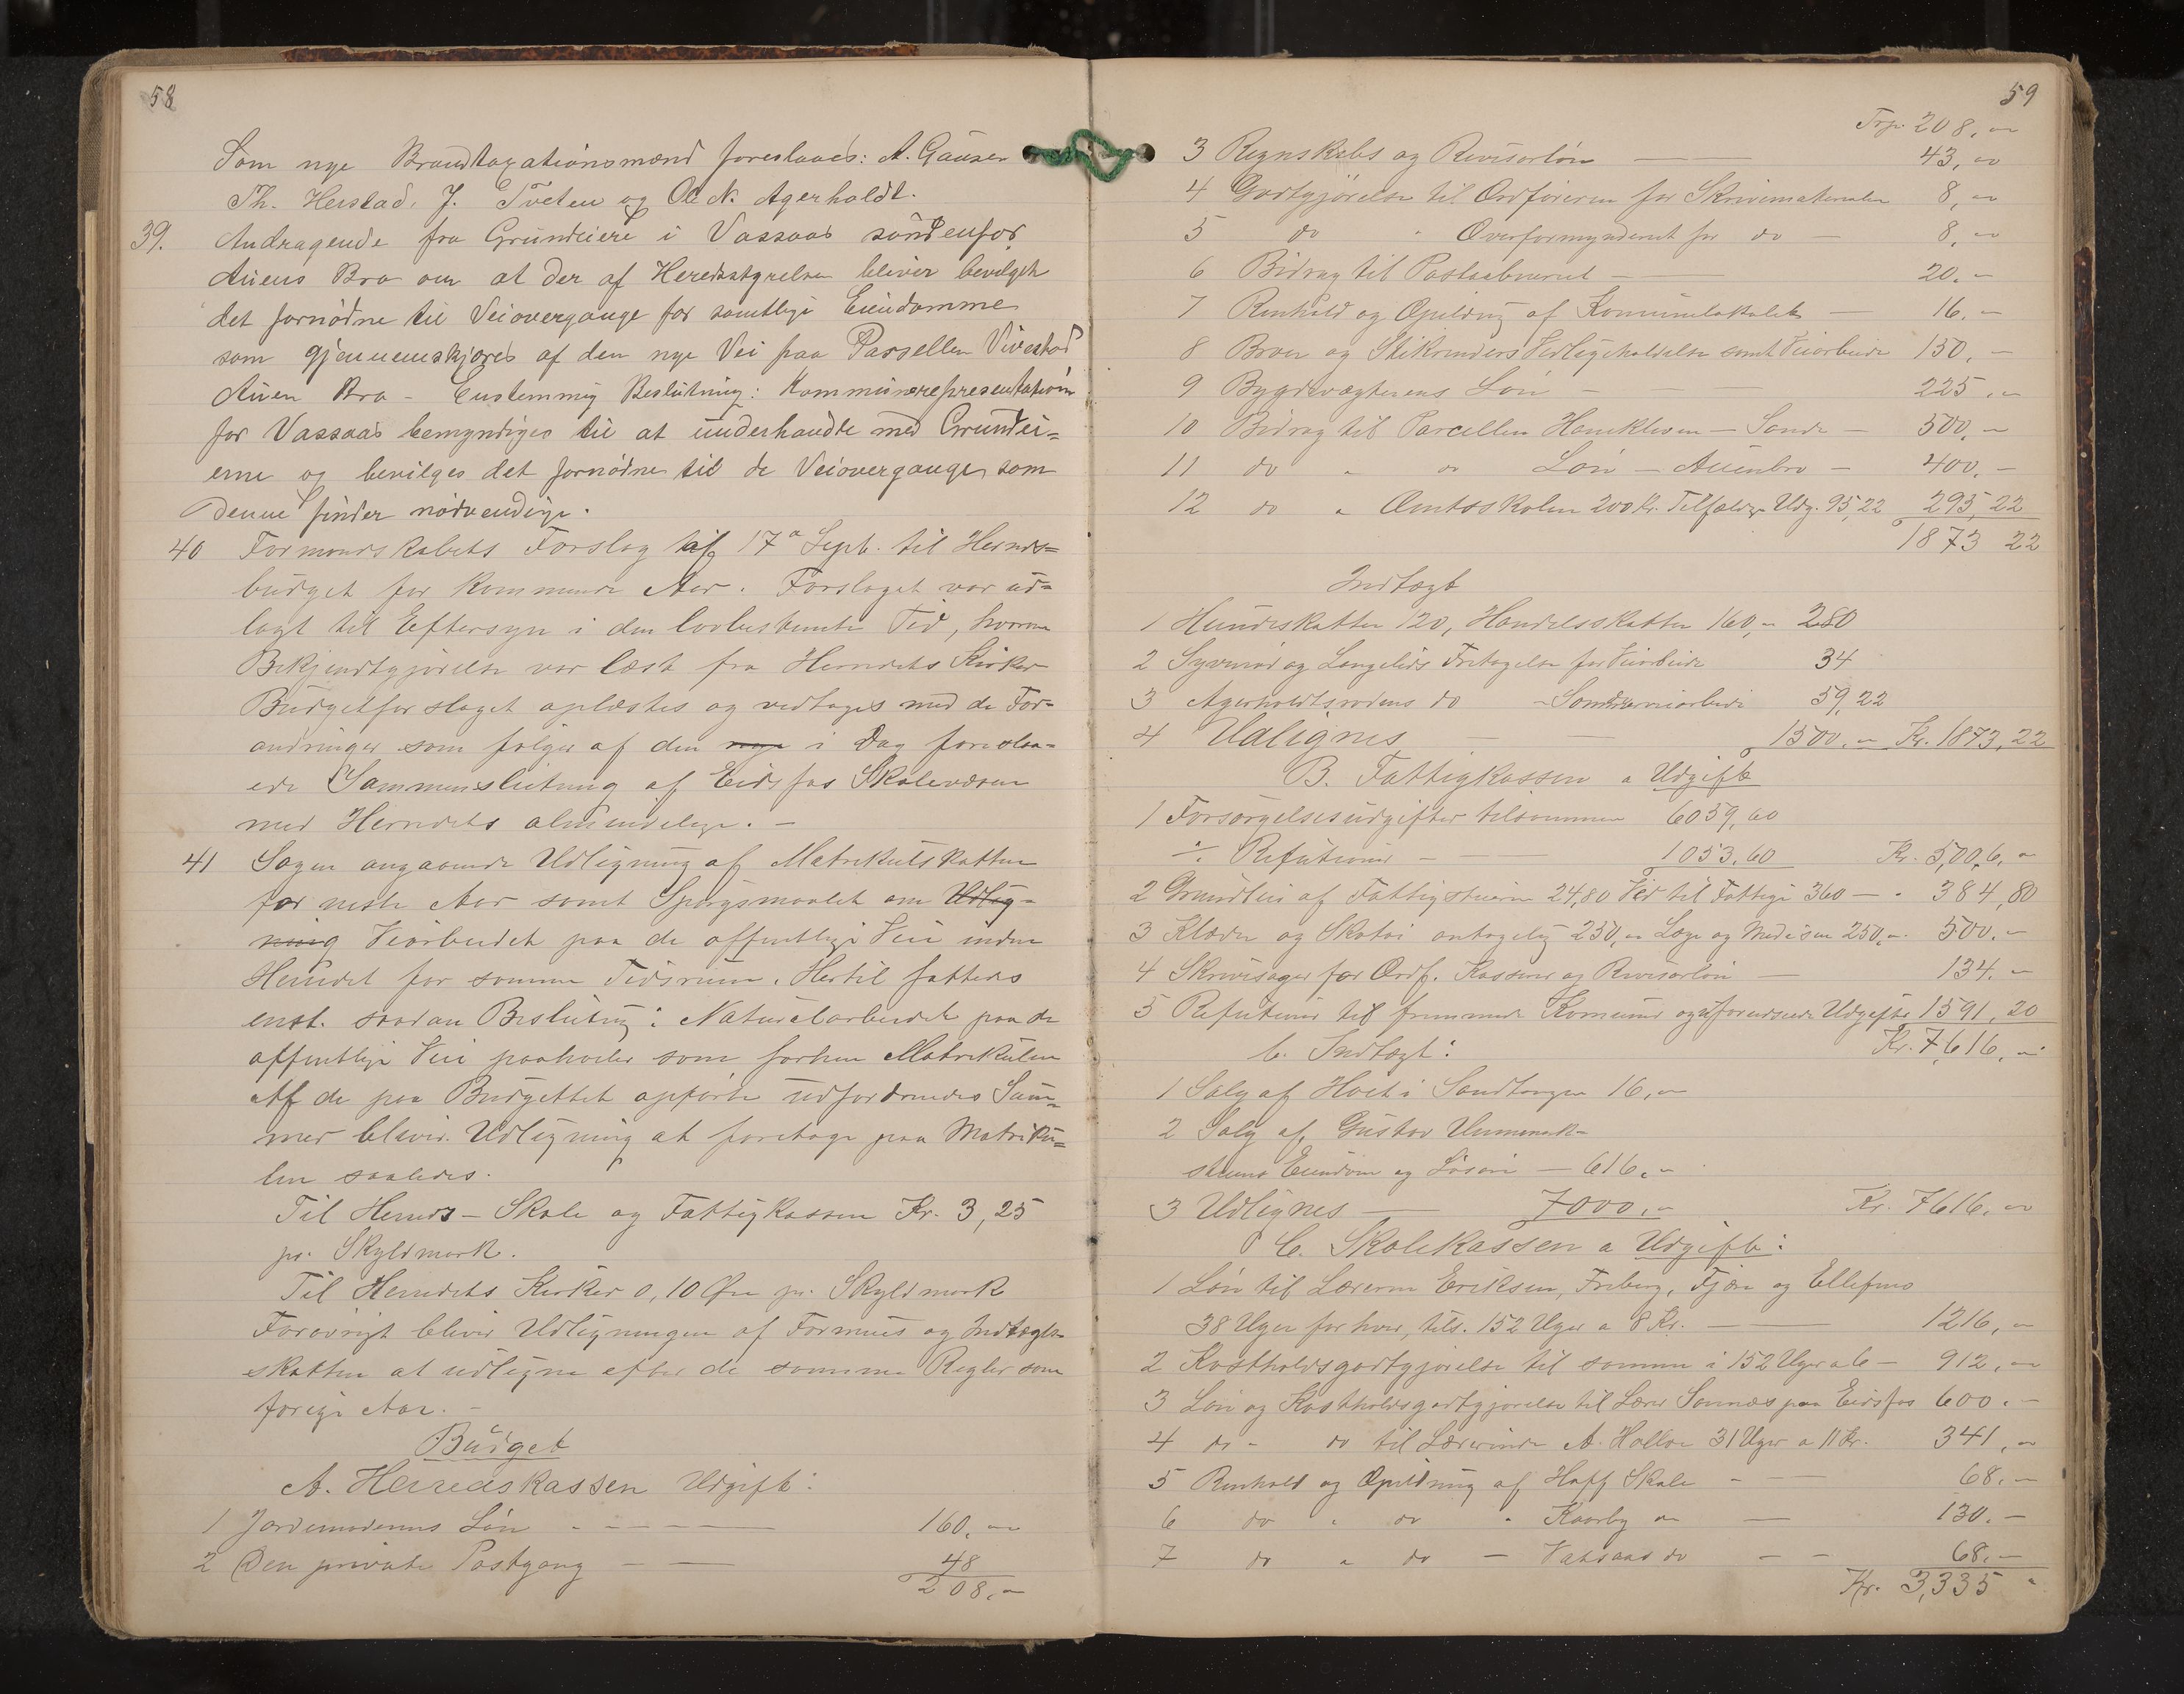 58
Som nye Brandtaxationsmænd foreslaaes: A. Gauser
Th. Herstad, J. Tveten og Ole N. Agerholdt.
39. Andragende fra Grundeiere i Vassaas søndenfor
Auens Bro om at der af Heredsstyrelsen bliver bevilget
det fornødne til Veiovergange for samtlige Eiendomme
som gjennemskjæres af den nye Vei paa Parsellen Vivestad
Auen Bro - Enstemmig Beslutning: Kommunerepresentation
for Vassaas bemyndiges til at underhandle med Grundei=
erne og bevilges det fornødne til de Veiovergange, som
denne finder nødvendige.
40 Formandskabets Forslag af 17de Sept. til Herreds=
budget for kommende Aar. Forslaget var ud=
lagt til Eftersyn i den lovbestemte Tid, hvorom
Bekjendtgjørelse var læst fra Herredets Kirker
Budgetforslaget oplæstes og vedtoges med de For=
andringer som følger af den nye i Dag foreslaa=
ede Sammenslutning af Eidsfos Skolevæsen
med Herredets almindelige. -
41 Sagen angaaende Udligning af Matrikulskatten
for neste Aar samt Spørgsmaalet om Udlig=
ning Veiarbeidet paa de offentlige Veie inden
Herredet for samme Tidsrum. Hertil fattedes
enst. saadan Beslutning: Naturalarbeidet paa de
offentlige Veie paahviler som forhen Matrikulen
Af de paa Budgettet opførte udfordrendes Sum=
mer bliver Udligning at foretage paa Matriku=
len saaledes.
Til Herreds- Skole og Fattigkassen Kr. 3,25
pr. Skyldmark.
Til Herredets Kirker 0,10 Øre pr. Skyldmark
Forøvrigt bliver Udligningen af Formues og Indtægts
skatten at udligne efter de samme Regler som
forige Aar. -
Budget
A. Herredskassen Udgift:
1 Jordemoderens Løn - - - 160, -
2 Den private Postgang - - 48
208, -
59
Trp. 208, -
3 Regnskabs og Revisorløn - 43, -
4 Godtgjørelse til Ordføreren for Skrivematerialer 8, -
5 do " Overformynderiet for do - 8, -
6 Bidrag til Postaabneriet - 20. -
7 Renhold og Opvarmning af Komunelokalet - 16. -
8 Broer og Stikrenders Vedligeholdelse samt Veiarbeide 150, -
9 Bygdevægterens Løn - 225, -
10 Bidrag til Parcellen Hanekleven - Sande - 500, -
11 do " do Løn - Auenbro - 400, -
12 do " Amtsskolen 200 Kr. Tilfældige Udg. 95,22 295,22
1873 22
Indtægt
1 Hundeskatten 120, Handelsskatten 160, - 280
2 Syvmøe og Langelids Fritagelse for Veiarbeide 34
3 Agerholdtsrodens do - Sommerveiarbeide 59,22
4 Udlignes - 1500. - Kr. 1873,22
B. Fattigkassen a Udgift
1 Forsørgelsesudgifter tilsammen 6059,60
÷ Refutioner - 1053,60 Kr. 5,006, -
2 Grundleie af Fattigstuerne 24,80 Ved til Fattige 360 - " 384,80
3 Klæder og Skotøi antagelig 250, - Læge og Medisin 250, - 500. -
4 Skrivesager for Ordf. Kasserer og Revisorløn - 134. -
5 Refutioner til fremmede Komuner og uforudseede Udgifter 1591,20
b. Indtægt: Kr. 7,616, -
1 Salg af Huset i Sandtangen 16, -
2 Salg af Gustav
Eiendom og Løsøre - 616. -
3 Udlignes - 7000. - Kr. 7616, -
C. Skolekassen a Udgift:
1 Løn til Lærerne Eriksen, Friberg, Fjære og Ellefsens
38 Uger for hver, tils. 152 Uger a 8 Kr. - 1216, -
2 Kostholdsgodtgjørelse til samme i 152 Uger a 6 - 912, -
3 Løn og Kostholdsgodtgjørelse til Lærer Sannæs paa Eidsfos 600. -
4 do - do til Lærerinde A. Hallou 31 Uger a 11 Kr. 341, -
5 Renhold og Opvarmning af Hoff Skole - 68. -
6 do " do " Kaarby do - 130. -
7 do " do - Vassaas do - 68. -
Kr. 3,335 -